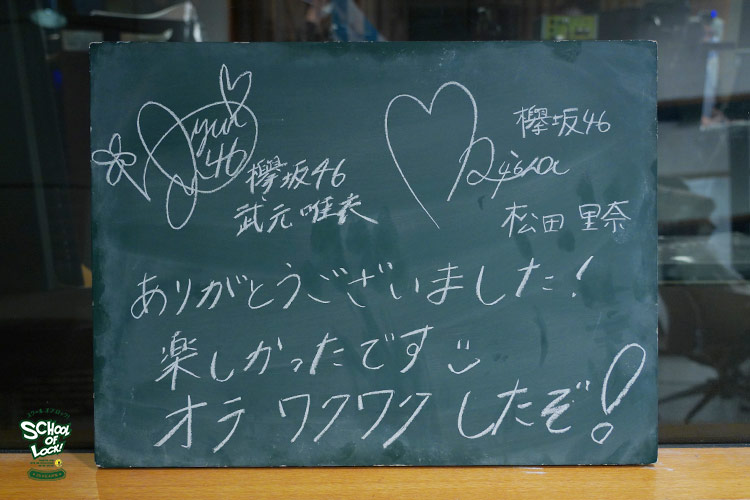 欅坂46
武元唯衣
欅坂46
松田里奈
ありがとうございました!
楽しかったです
オラ ワクワク したぞ!
SCHOOL
OF
LOCK!